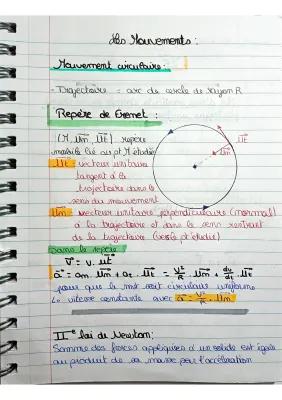 Les Mouvements :
Mouvement circulaire :
- Trajectoire = arc de cercle de rayon R
Repère de Frenet :
(M, Un, Ut) repère
mobile lié au pt M étudié
Ut
Un
Ut : vecteur unitaire
tangent à la
trajectoire dans le
sens du mouvement
Un : vecteur unitaire perpendiculaire (normal)
à la trajectoire et dans le sens rentrant
de la trajectoire (vers le pt étudié)
Dans le repère
V = v. Ut
a = an. Un + at. Ut = V²/R . Un + dv/dt Ut
pour que le mvt soit circulaire uniforme
↳ vitesse constante avec a = V²/R . Un
II e loi de Newton :
Somme des forces appliquées à un solide est égale
au produit de sa masse par l'accélération